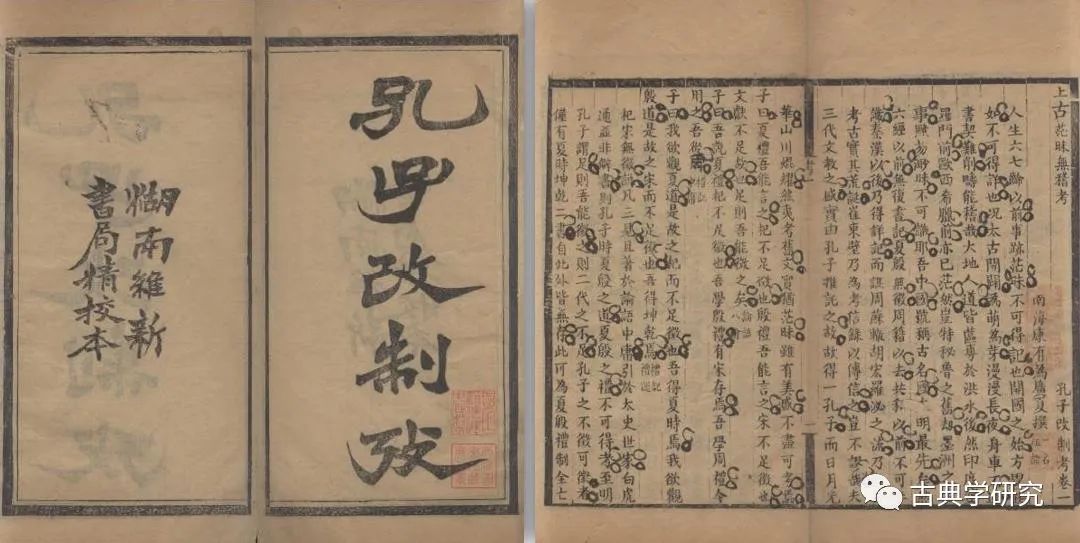 孔子改制攷
湖南維新
書局精校本
孔子改制考卷一
南海康有為廣廈撰
上古茫昧無稽考
人生六七齡以前事跡茫昧不可得記也開國之始方
如不可得詳也況太古開闢為萌為芽漫漫長夜身車
書契難削疇能稽哉大地人道皆蓲於洪水後然印度
羅門前歐西希臘前亦已茫然豈特秘魯之舊劫墨洲
事黯渺昧不可識耶吾中國號稱古名國文明最先矣
六經以前無復書記夏殷無徵周籍以去共和以前不可
識秦漢以後乃得詳記而譙周蘇轍胡宏羅泌之流乃
考古實其荒誕崔東壁乃為考信錄以傳信之豈不謬哉夫
三代文教之盛實由孔子推託之故故得一孔子而日月光
華山川焜耀然夷考舊文實猶茫昧雖有美盛不盡可考焉
子曰夏禮吾能言之杞不足徵也殷禮吾能言之宋不足徵也
文獻不足故也足則吾能徵之矣論語八佾
子曰吾說夏禮杞不足徵也吾學殷禮有宋存焉吾學周禮今
用之吾從周
子曰我欲觀夏道是故之杞而不足徵也吾得夏時焉我欲觀
殷道是故之宋而不足徵也吾得坤乾焉禮記禮運
杞宋無徵說凡三見且著於論語中庸引於太史世家白虎
通並非僻書則孔子時夏殷之道夏殷之禮不可得考至明
孔子謂足則吾能徵之則二代之不足孔子之不徵可徵者
僅有夏時坤乾二書自此外皆無存此可為夏殷禮制全亡
古典学研究